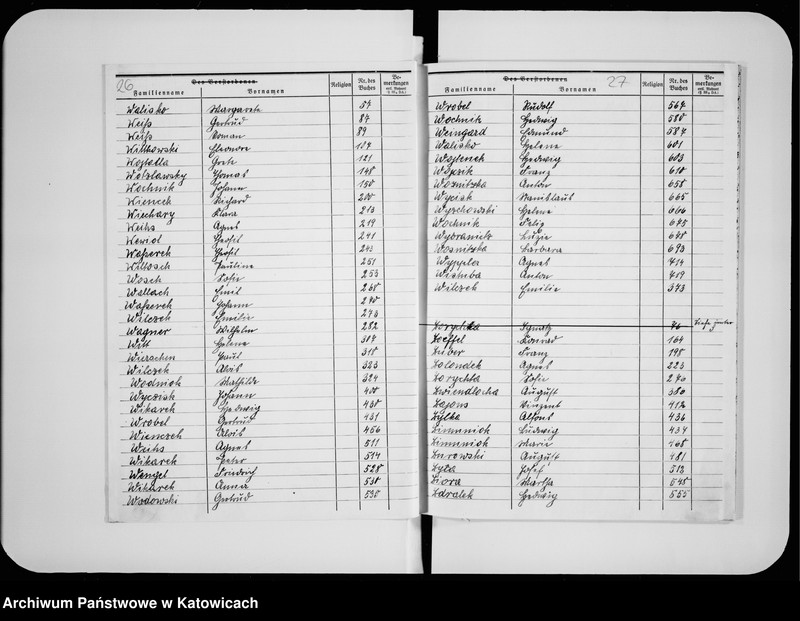 26
Des Verstorbenen
Familienname Vornamen Religion Nr. des Buches Bemerkungen
Walisko Margarete 57
Weiß Gertrud 87
Weiß Roman 89
Wittkowski Eleonore 107
Wojtalla Grete 121
Watzlawsky Thomas 148
Wochnik Johann 150
Wiencek Richard 200
Wiechary Klara 213
Weihs Agnes 219
Kewiol Teofil 241
Wasserek Teofil 243
Wittosch Pauline 251
Wosch Sofie 253
Wallach Emil 268
Wasserek Johann 270
Wilczek Emilie 273
Wagner Wilhelm 282
Witt Helene 307
Wieruschin Paul 318
Wilczek Alois 323
Wodnioh Mathilde 324
Wyczisk Johann 400
Wikarek Hedwig 430
Wrobel Gertrud 431
Wienczek Alois 456
Weihs Agnes 511
Wikarek Peter 514
Wengel Friedrich 528
Wikarek Anna 530
Wodowski Gertrud 538
27
Des Verstorbenen
Familienname Vornamen Religion Nr. des Buches Bemerkungen
Wrobel Rudolf 567
Wochnik Hedwig 580
Weingard Edmund 587
Walisko Helene 601
Wojtenek Hedwig 603
Franz 610
Woznitzka Anton 658
Wycisk Stanislaus 665
Wyschowski Helene 666
Wochnik Felix 675
Wybranietz Luzie 678
Wosnitzka Barbara 693
Wyppler Agnes 714
Wistuba Anton 719
Wilczek Emilie 373
Zorychta Ignatz 76 Siehe hinter
Zoeffel Konrad 164
Zuber Franz 198
Zolondek Agnes 223
Zorychta Sofie 270
Zwiendlocha August 380
Zajons Vinzent 412
Zylka Alfons 436
Zimmnioh Ludwig 437
Zimnnioh Marie 468
Zurowski August 481
Zyla Josef 513
Ziora Martha 548
Zdralek Hedwig 555
Archiwum Państwowe w Katowicach